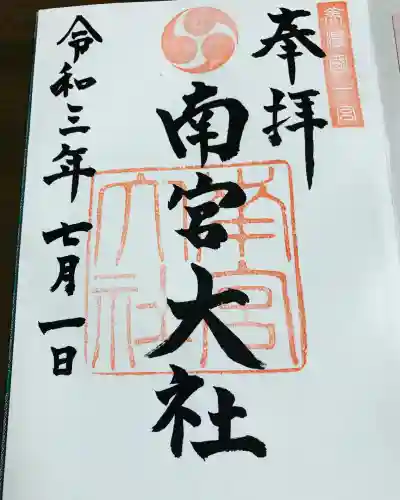 美濃國一宮
奉拝
南宮大社
南宮
大社
令和三年七月一日